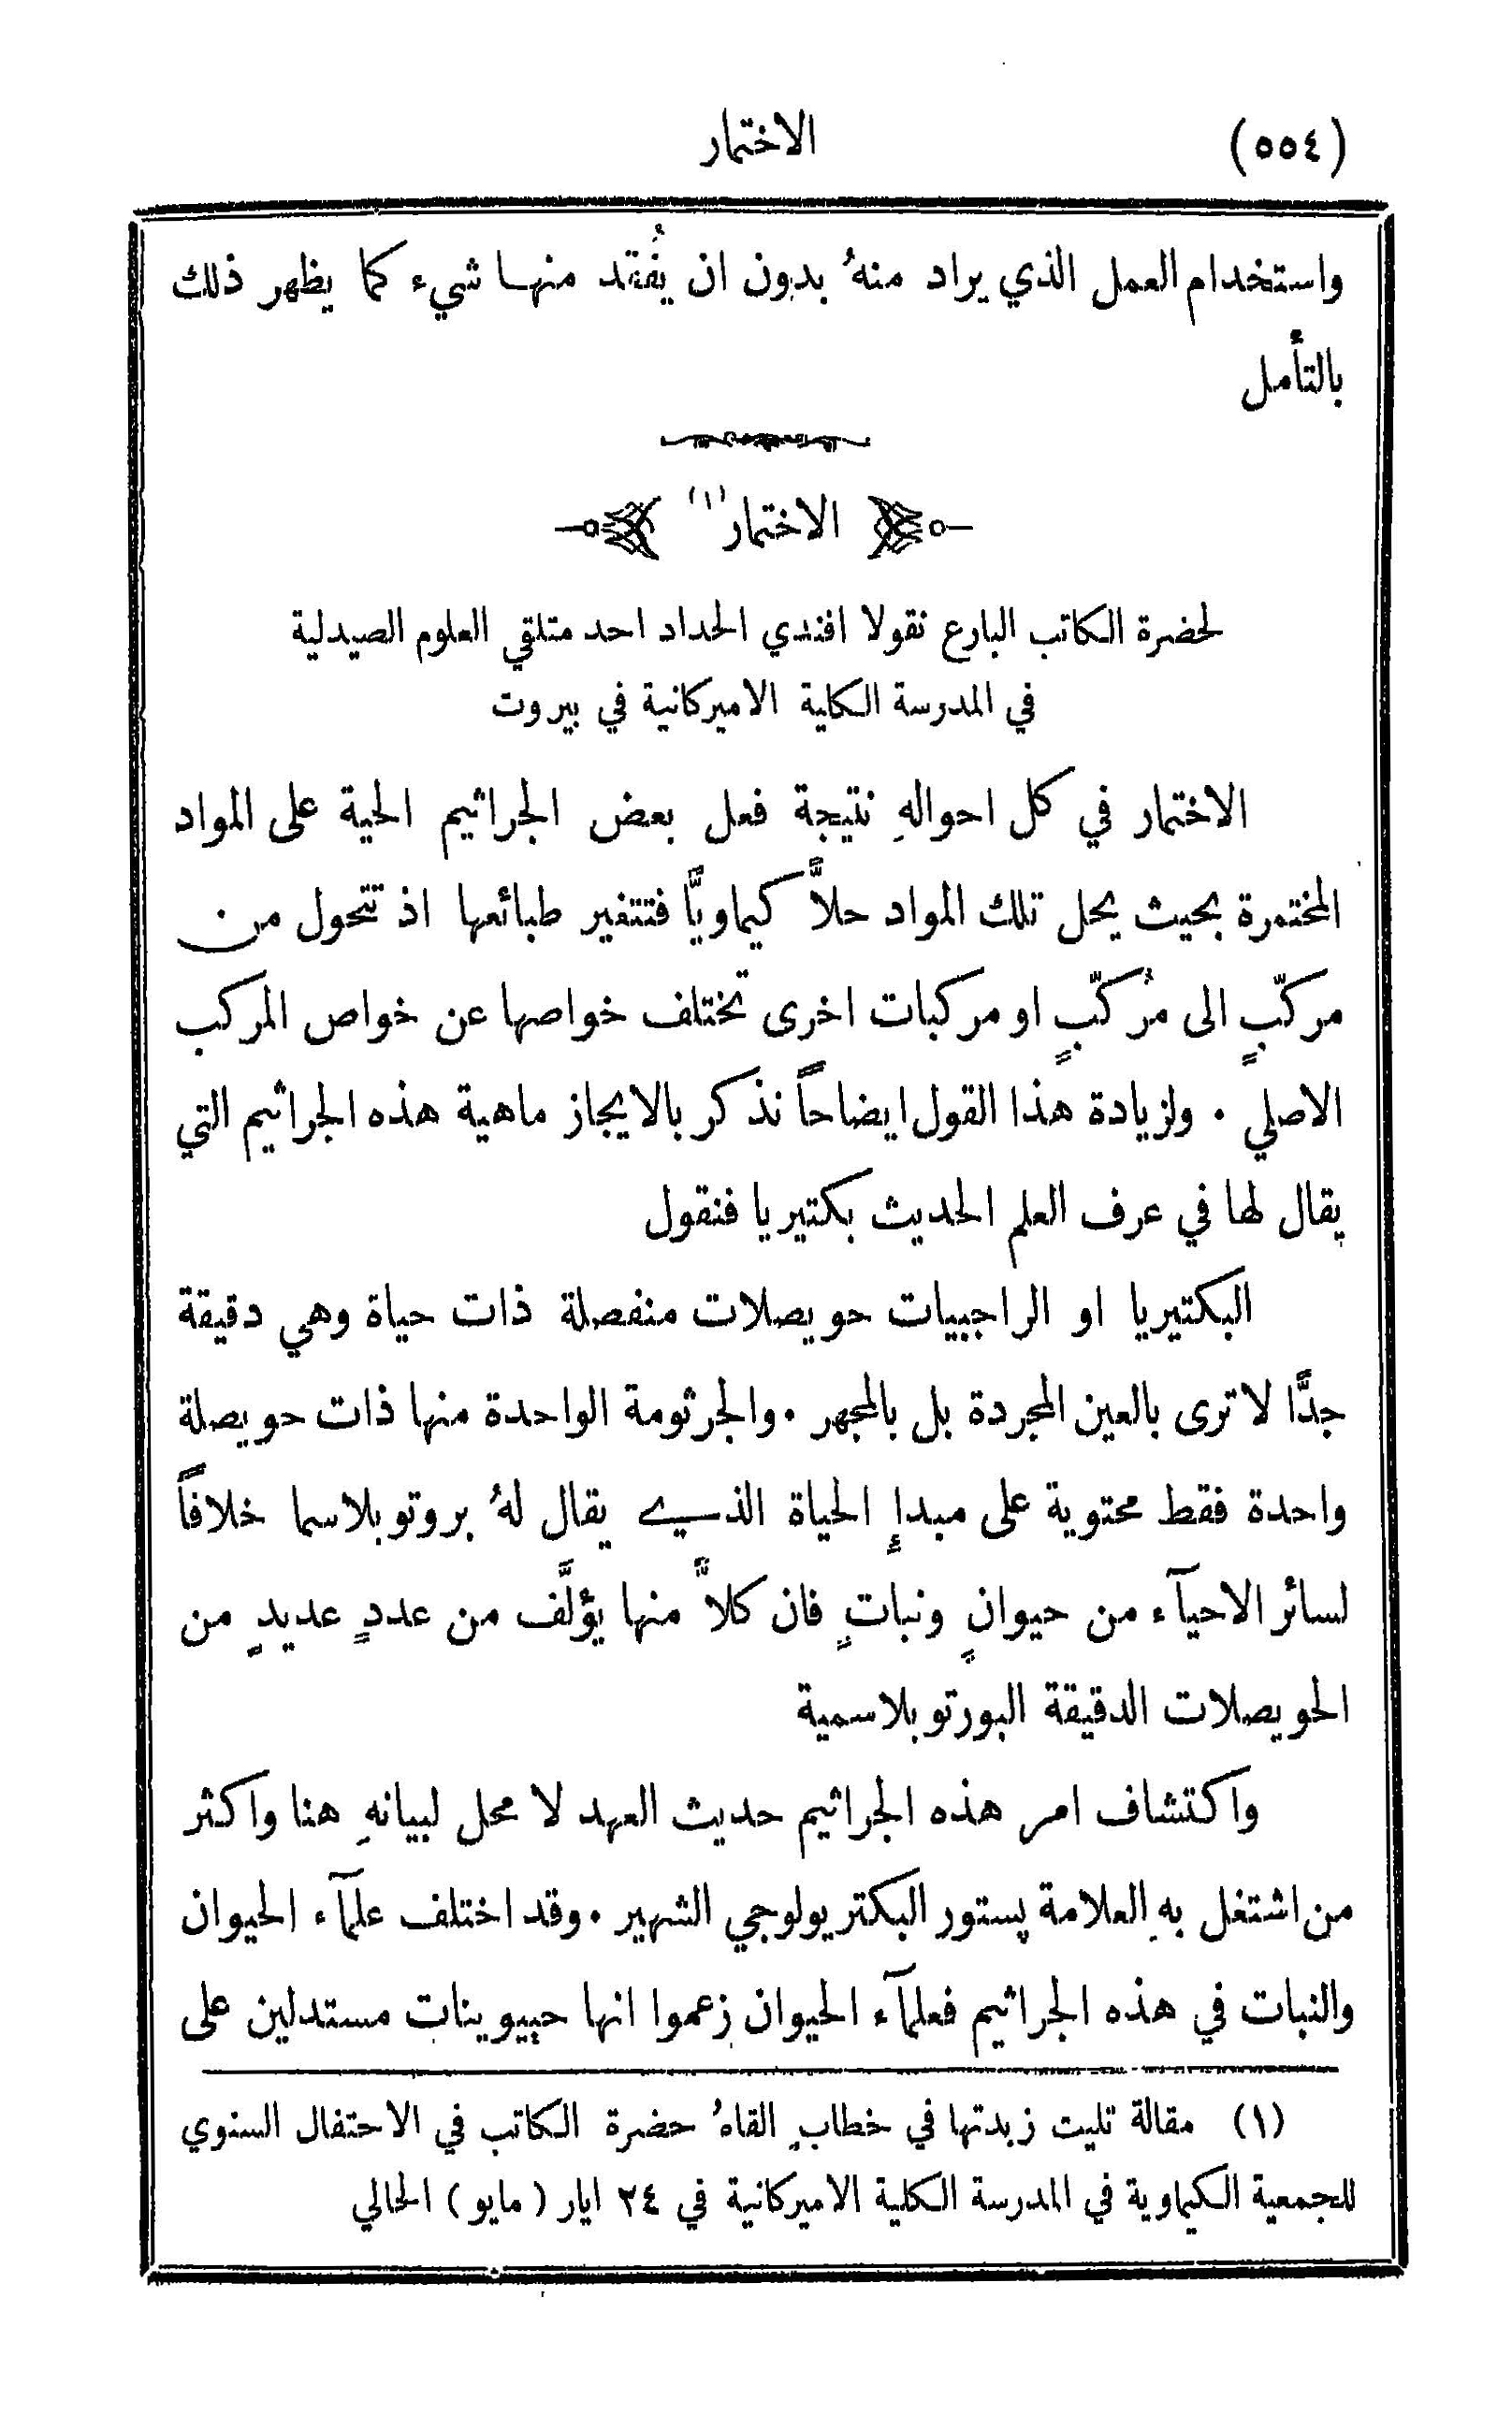 (٥٥٤) الاختمار
واستخدام العمل الذي يراد منهُ بدون ان يُفقد منها شيء كما يظهر ذلك
بالتأمل
الاختمار (١)
لحضرة الكاتب البارع نقولا افندي الحداد احد متلقي العلوم الصيدلية
في المدرسة الكلية الاميركانية في بيروت
الاختمار في كل احوالهِ نتيجة فعل بعض الجراثيم الحية على المواد
المختمرة بحيث يحل تلك المواد حلاًّ كيماويًّا فتتغير طبائعها اذ تتحول من
مركّبٍ الى مُركّبٍ او مركبات اخرى تختلف خواصها عن خواص المركب
الاصلي . ولزيادة هذا القول ايضاحاً نذكر بالايجاز ماهية هذه الجراثيم التي
يقال لها في عرف العلم الحديث بكتيريا فنقول
البكتيريا او الراجبيات حويصلات منفصلة ذات حياة وهي دقيقة
جدًّا لا ترى بالعين المجردة بل بالمجهر . والجرثومة الواحدة منها ذات حويصلة
واحدة فقط محتوية على مبدإِ الحياة الذي يقال لهُ بروتوبلاسما خلافاً
لسائر الاحيآء من حيوانٍ ونباتٍ فان كلاًّ منها يؤلَّف من عددٍ عديدٍ من
الحويصلات الدقيقة البورتوبلاسمية
واكتشاف امر هذه الجراثيم حديث العهد لا محل لبيانهِ هنا واكثر
من اشتغل بهِ العلامة پستور البكتريولوجي الشهير . وقد اختلف علمآء الحيوان
والنبات في هذه الجراثيم فعلمآء الحيوان زعموا انها حييوينات مستدلين على
(١) مقالة تليت زبدتها في خطابٍ القاهُ حضرة الكاتب في الاحتفال السنوي
للجمعية الكيماوية في المدرسة الكلية الاميركانية في ٢٤ ايار ( مايو ) الحالي